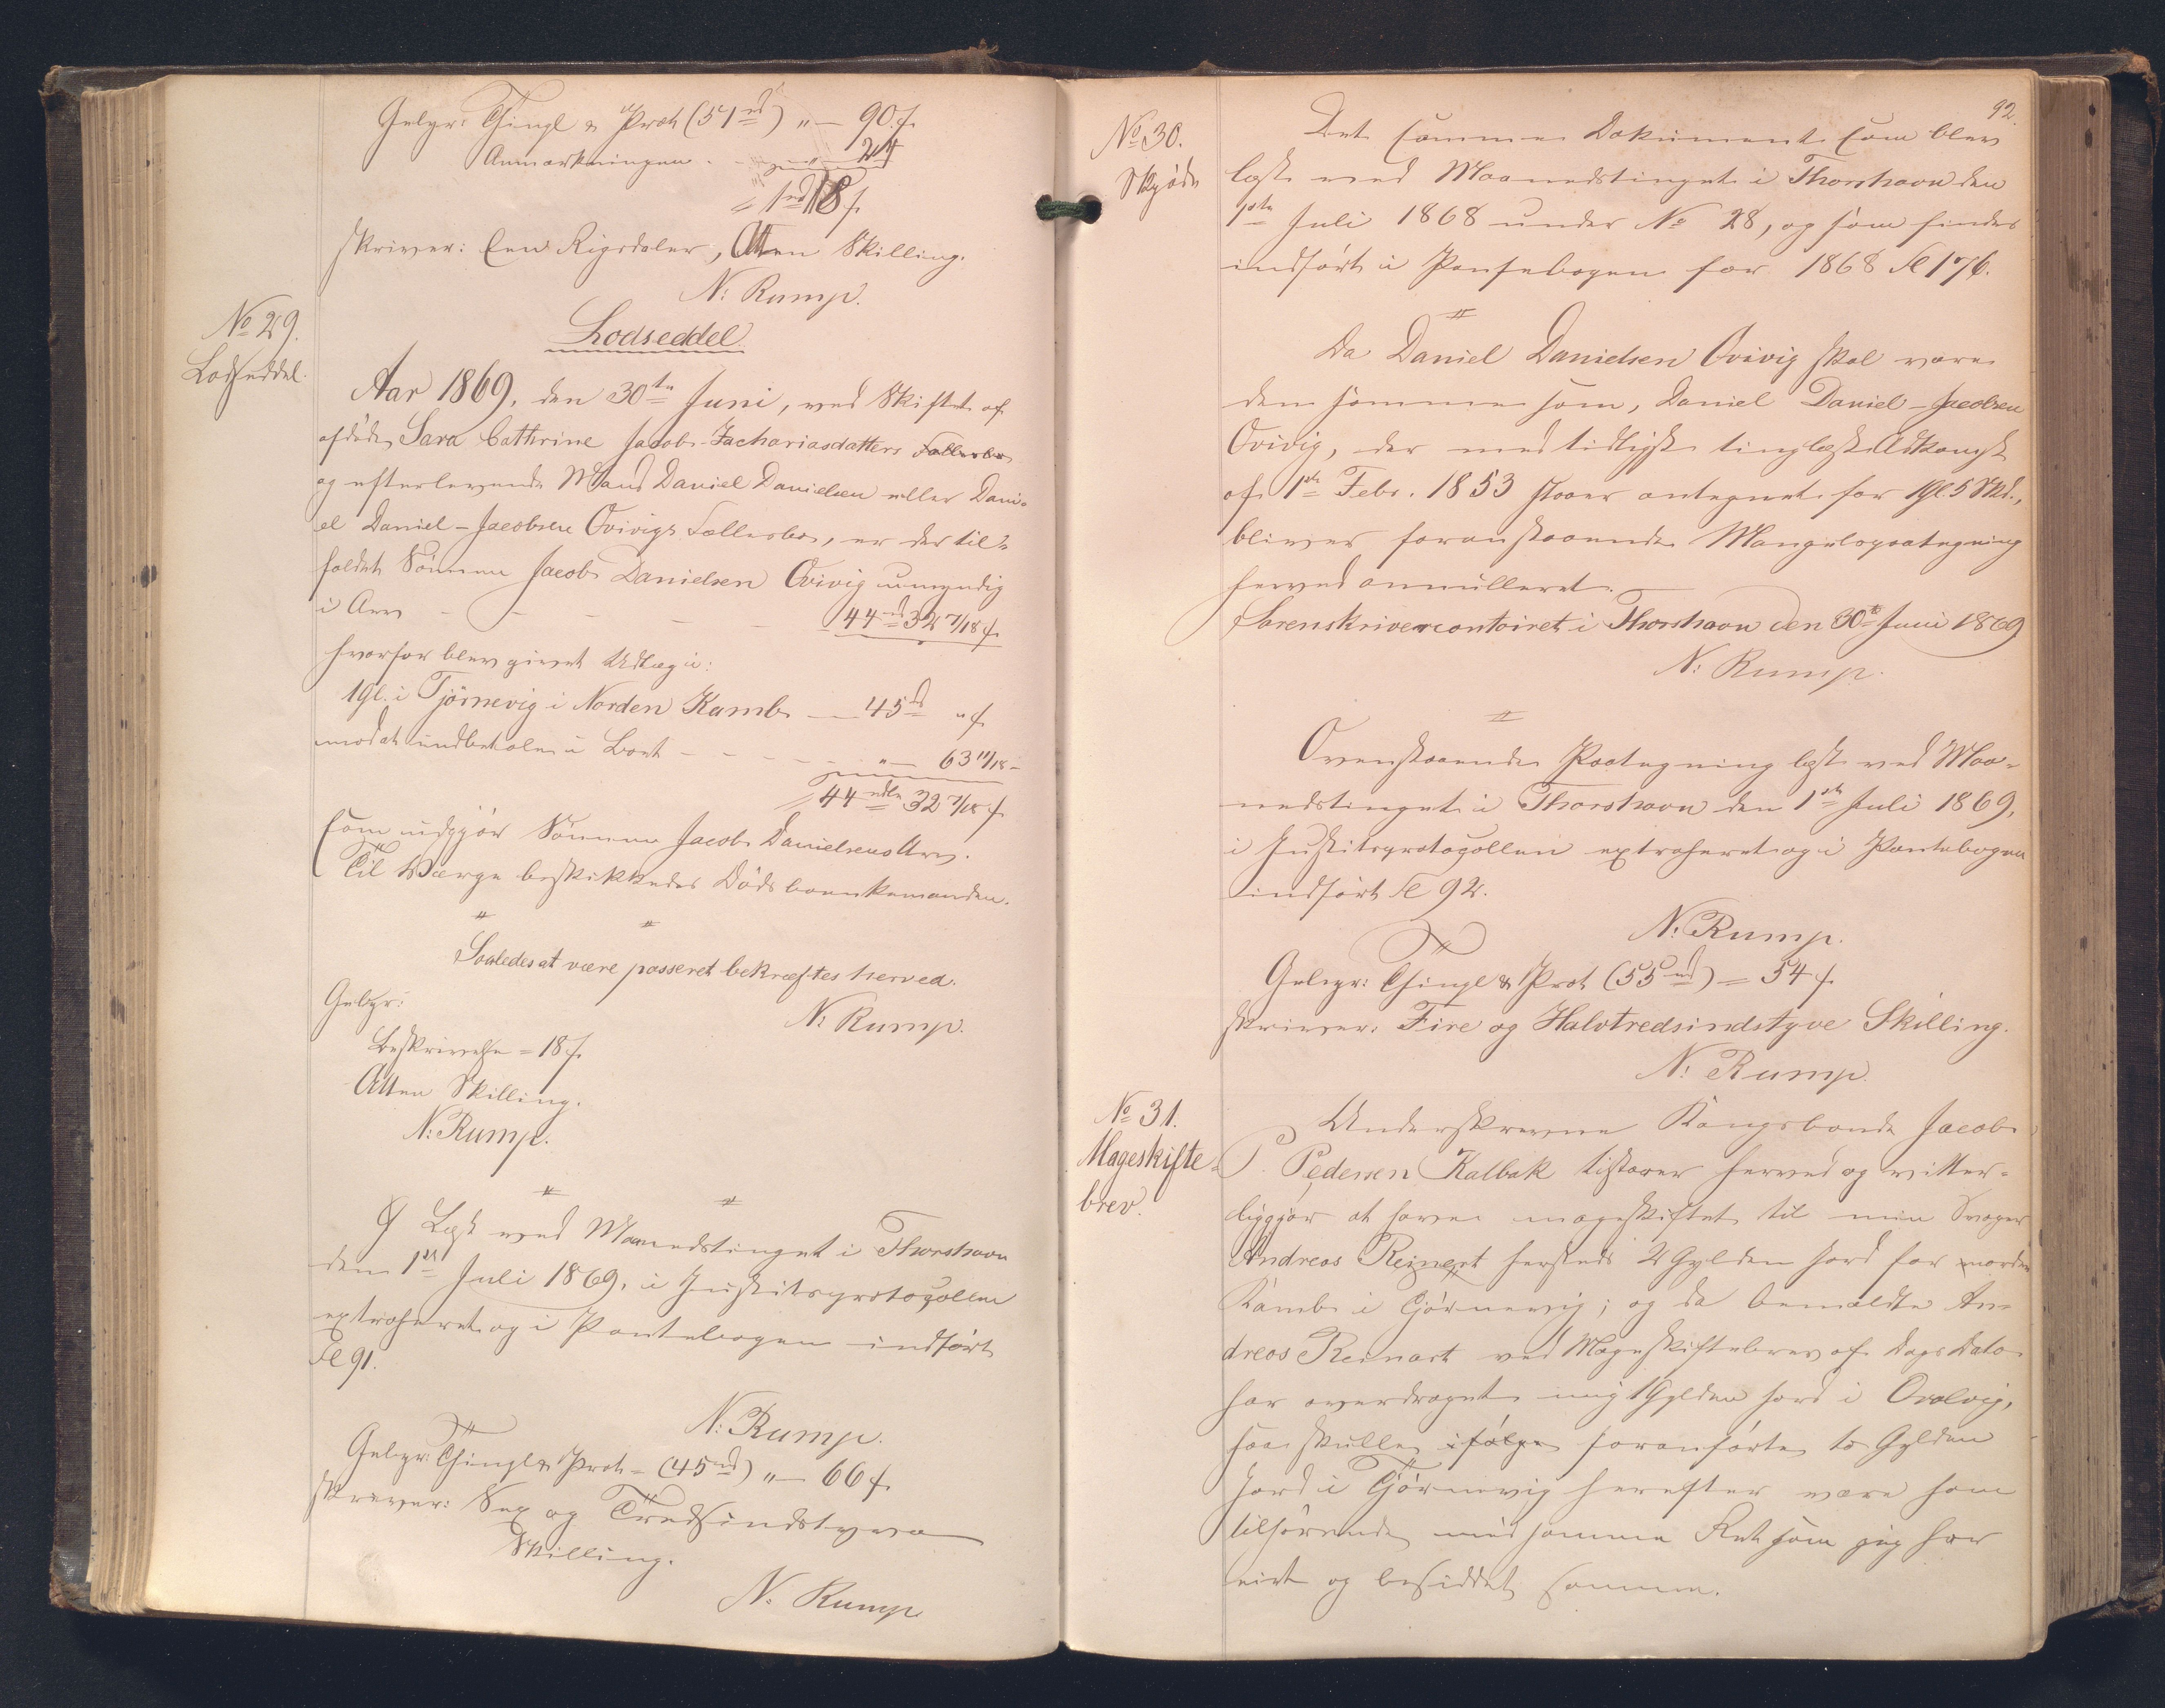 Gebyr: Thingl & Prot (51 rd) " — 90 f.
Anmærkningen - - " — 24
1 rd 18 f.
skriver: Een Rigsdaler, Atten Skilling.
N: Rump.
No 29.
Lodseddel.
Lodseddel
Aar 1869, den 30te Juni, ved Skiftet af
afdøde Sara Cathrine Jacobs-Zachariasdatters Fællesbo
og efterlevende Mand Daniel Danielsen eller Dani-
el Daniel-Jacobsen Qvivigs Fællesbo, er der til-
faldet Sønnen Jacob Danielsen Qvivig umyndig
i Arv - - - - - 44 rd 32 7/18 f.
hvorfor blev givet Udlæg i:
1 Gl. i Tjörnevig i Norden Kamb — 45 rd " f.
mod at indbetale i Boet - - - " — 63 11/18 -
44 rdlr 32 7/18 f.
som udgjør Sønnen Jacob Danielsens Arv.
Til Værge beskikkedes Dødsboenkemanden.
" "
Saaledes at være passeret bekræftes herved.
N: Rump.
Gebyr:
Beskrivelse = 18 f.
Atten Skilling.
N: Rump.
" "
Læst ved Maanedstinget i Thorshavn
den 1ste Juli 1869, i Justitsprotocollen
extraheret og i Pantebogen indført
Fol 91.
N: Rump.
Gebyr: Thingl & Prot = (45 rd) " — 66 f.
skriver: Sex og Tredsindstyve
Skilling.
N: Rump
92.
No 30.
Skjøde
Det samme Dokument som blev
læst ved Maanedstinget i Thorshavn den
1ste Juli 1868 under No 28, og som findes
indført i Pantebogen for 1868 Fol 176.
"
Da Daniel Danielsen Qvivig skal være
den samme som, Daniel Daniel-Jacobsen
Qvivig, der med tidligst tinglæst Adkomst
af 1ste Febr. 1853 staaer antegnet for 1 Gl. 5 Skd.,
bliver foranstaaende Mangelspaategning
herved annulleret.
Sorenskrivercontoiret i Thorshavn den 30te Juni 1869
N: Rump.
"
Ovenstaaende Paategning læst ved Maa-
nedstinget i Thorshavn den 1ste Juli 1869,
i Justitsprotocollen extraheret og i Pantebogen
indført Fol 92.
N: Rump.
Gebyr: Thingl & Prot (55 rd) = 54 f.
skriver: Fire og Halvtredsindstyve Skilling.
N: Rump
No 31.
Mageskifte-
brev.
Underskrevne Kongsbonde Jacob
P. Pedersen Kalbak tilstaaer herved og vitter-
liggjør at have mageskiftet til min Svoger
Andreas Reinert hersteds 2 Gylden Jord for norden
Kamb i Tjörnevig; og da bemældte An-
dreas Reinart ved Mageskiftebrev af Dags Dato
har overdraget mig 1 Gylden Jord i Qvalvig,
saa skulle ifølge foranførte to Gylden
Jord i Tjörnevig herefter være ham
tilhørende med samme Ret som jeg har
eiet og besiddet samme.